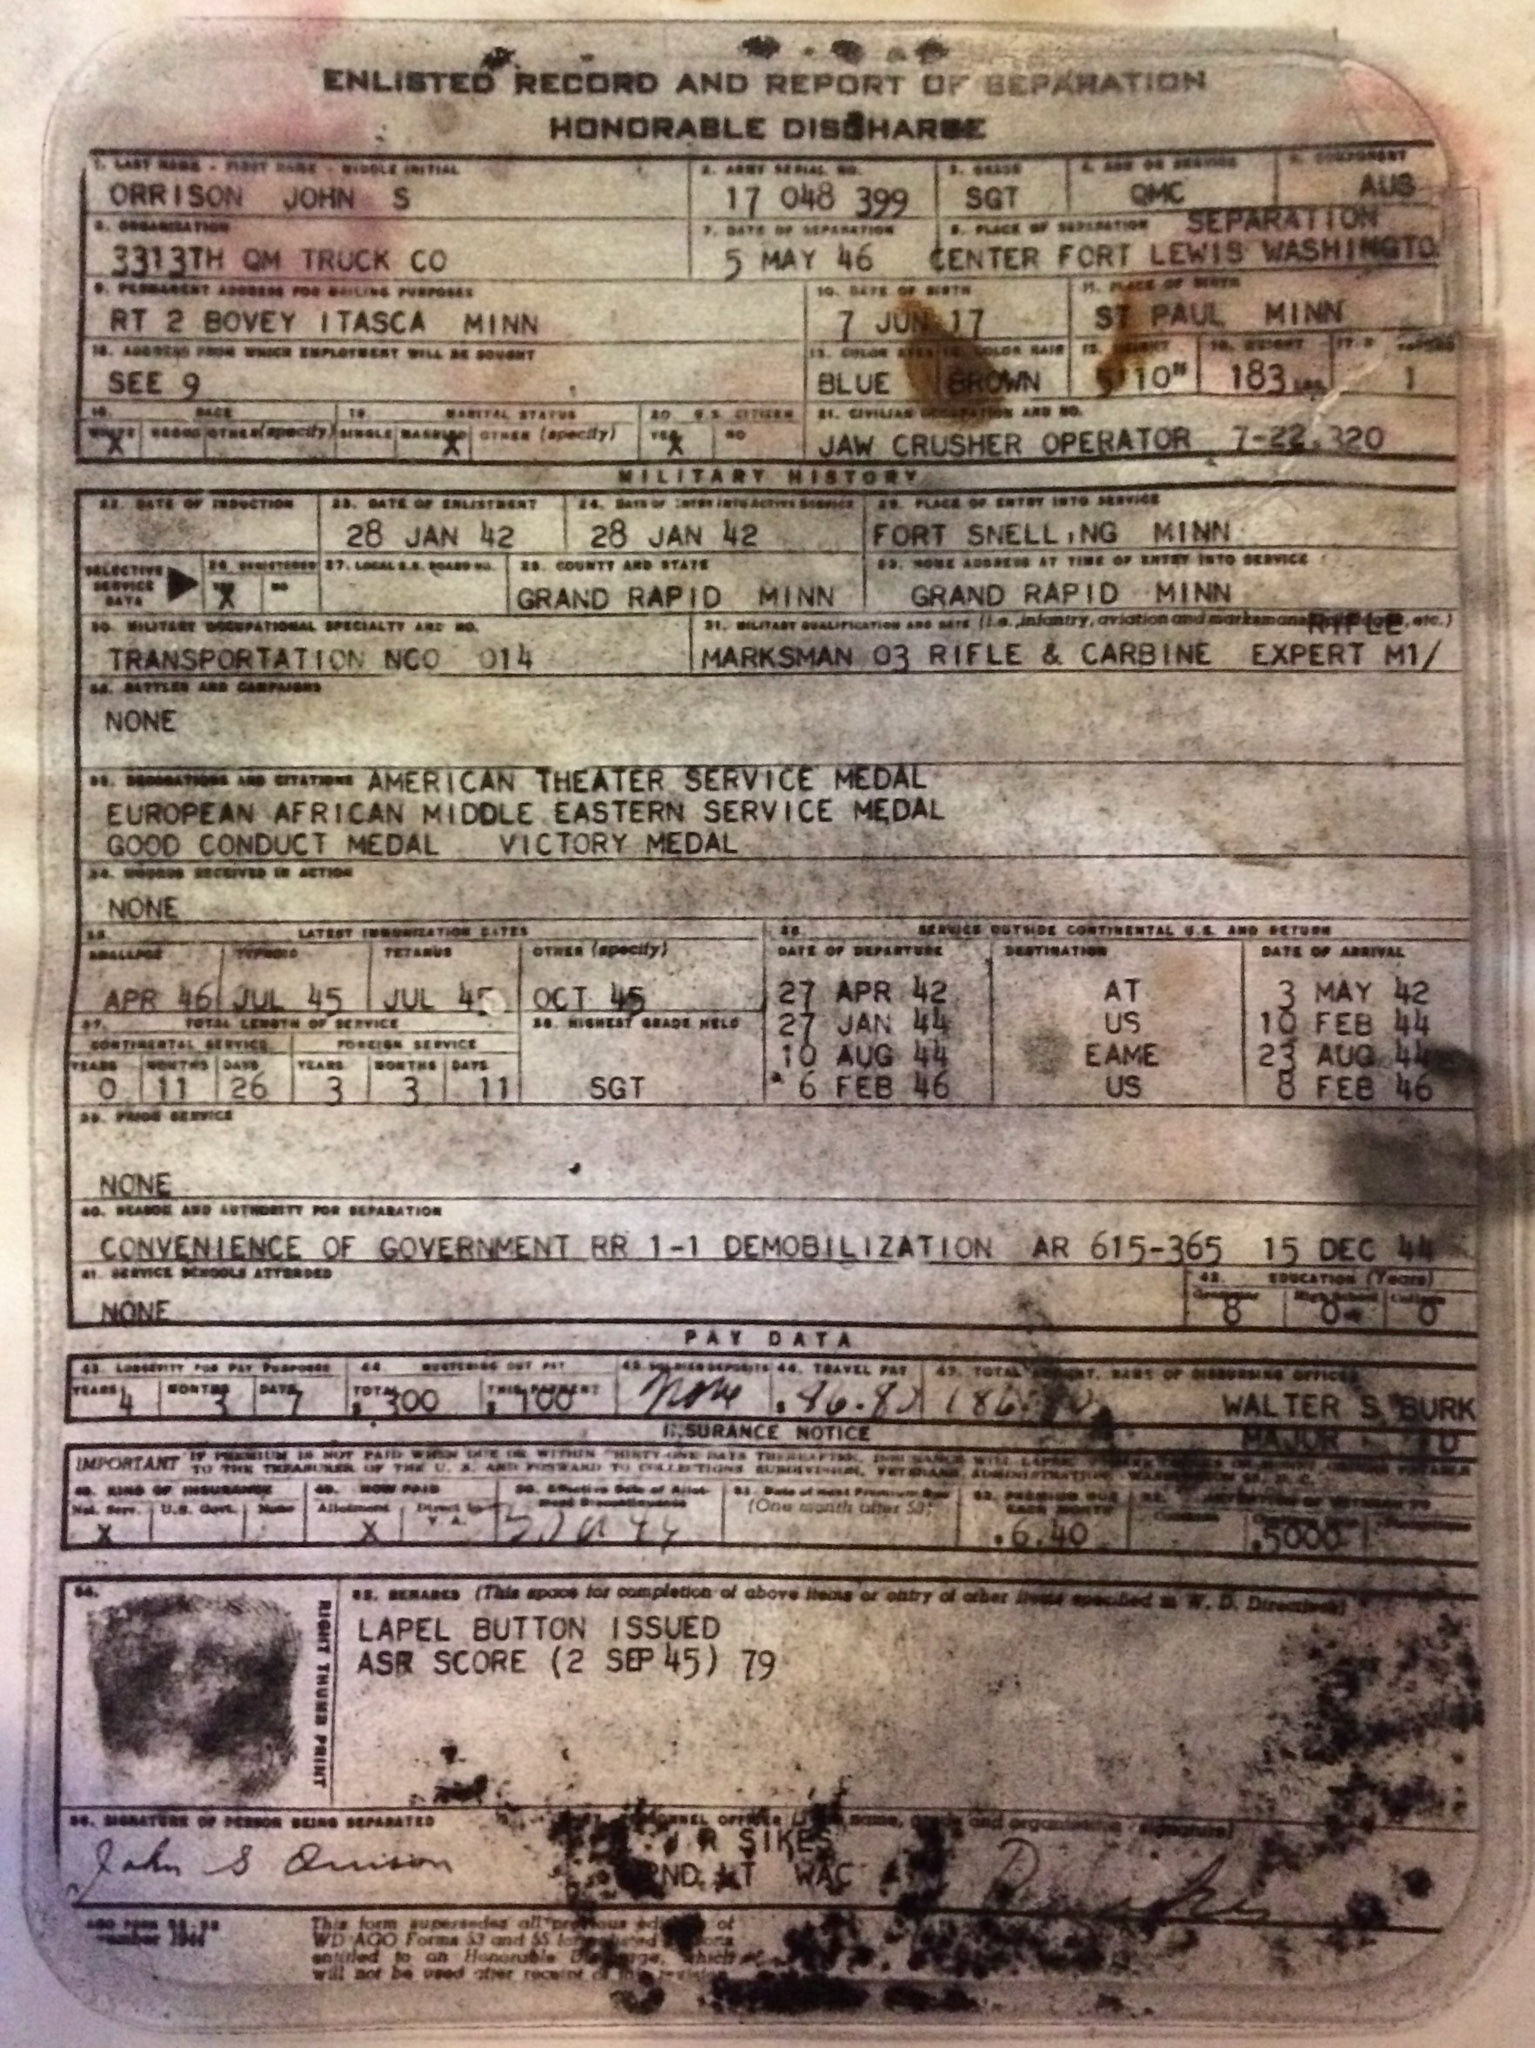 ENLISTED RECORD AND REPORT OF SEPARATION
HONORABLE DISCHARGE
1. LAST NAME - FIRST NAME - MIDDLE INITIAL 2. ARMY SERIAL NO. 3. GRADE 4. ARM OR SERVICE 5. COMPONENT
ORRISON JOHN S 17 048 399 SGT QMC AUS
6. ORGANIZATION 7. DATE OF SEPARATION 8. PLACE OF SEPARATION SEPARATION
3313TH QM TRUCK CO 5 MAY 46 CENTER FORT LEWIS WASHINGTO
9. PERMANENT ADDRESS FOR MAILING PURPOSES 10. DATE OF BIRTH 11. PLACE OF BIRTH
RT 2 BOVEY ITASCA MINN 7 JUN 17 ST PAUL MINN
12. ADDRESS FROM WHICH EMPLOYMENT WILL BE SOUGHT 13. COLOR EYES 14. COLOR HAIR 15. HEIGHT 16. WEIGHT 17.
SEE 9 BLUE BROWN 5'10" 183 LBS. 1
18. RACE 19. MARITAL STATUS 20. U.S. CITIZEN 21. CIVILIAN OCCUPATION AND NO.
WHITE NEGRO OTHER (specify) SINGLE MARRIED OTHER (specify) YES NO
X X X JAW CRUSHER OPERATOR 7-22.320
MILITARY HISTORY
22. DATE OF INDUCTION 23. DATE OF ENLISTMENT 24. DATE OF ENTRY INTO ACTIVE SERVICE 25. PLACE OF ENTRY INTO SERVICE
28 JAN 42 28 JAN 42 FORT SNELLING MINN
SELECTIVE SERVICE DATA 26. REGISTERED YES NO 27. LOCAL S.S. BOARD NO. 28. COUNTY AND STATE 29. HOME ADDRESS AT TIME OF ENTRY INTO SERVICE
X GRAND RAPID MINN GRAND RAPID MINN
30. MILITARY OCCUPATIONAL SPECIALTY AND NO. 31. MILITARY QUALIFICATION AND DATE (i.e., infantry, aviation and marksmanship badges, etc.) RIFLE
TRANSPORTATION NCO 014 MARKSMAN 03 RIFLE & CARBINE EXPERT M1/
32. BATTLES AND CAMPAIGNS
NONE
33. DECORATIONS AND CITATIONS AMERICAN THEATER SERVICE MEDAL
EUROPEAN AFRICAN MIDDLE EASTERN SERVICE MEDAL
GOOD CONDUCT MEDAL VICTORY MEDAL
34. WOUNDS RECEIVED IN ACTION
NONE
35. LATEST IMMUNIZATION DATES 36. SERVICE OUTSIDE CONTINENTAL U.S. AND RETURN
SMALLPOX TYPHOID TETANUS OTHER (specify) DATE OF DEPARTURE DESTINATION DATE OF ARRIVAL
APR 46 JUL 45 JUL 45 OCT 45 27 APR 42 AT 3 MAY 42
37. TOTAL LENGTH OF SERVICE 38. HIGHEST GRADE HELD 27 JAN 44 US 10 FEB 44
CONTINENTAL SERVICE FOREIGN SERVICE 10 AUG 44 EAME 23 AUG 44
YEARS MONTHS DAYS YEARS MONTHS DAYS
0 11 26 3 3 11 SGT 6 FEB 46 US 8 FEB 46
39. PRIOR SERVICE
NONE
40. REASON AND AUTHORITY FOR SEPARATION
CONVENIENCE OF GOVERNMENT RR 1-1 DEMOBILIZATION AR 615-365 15 DEC 44
41. SERVICE SCHOOLS ATTENDED 42. EDUCATION (Years)
Grammar High School College
NONE 8 0 0
PAY DATA
43. LONGEVITY FOR PAY PURPOSES 44. MUSTERING OUT PAY 45. SOLDIER DEPOSITS 46. TRAVEL PAY 47. TOTAL AMOUNT, NAME OF DISBURSING OFFICER
YEARS MONTHS DAYS TOTAL THIS PAYMENT
4 3 7 $ 300 $ 100 None $ 86.80 WALTER S BURK
INSURANCE NOTICE MAJOR
IMPORTANT IF PREMIUM IS NOT PAID WHEN DUE OR WITHIN THIRTY-ONE DAYS THEREAFTER, INSURANCE WILL LAPSE.
TO THE TREASURER OF THE U. S. AND FORWARD TO COLLECTIONS SUBDIVISION, VETERANS ADMINISTRATION, WASHINGTON 25, D. C.
48. KIND OF INSURANCE 49. HOW PAID 50. Effective Date of Allotment Discontinuance 51. Date of Next Premium Due (One month after 50) 52. PREMIUM DUE EACH MONTH 53. INTENTION OF VETERAN TO
Nat. Serv. U.S. Govt. None Allotment Direct to V. A. Continue
X X $ 6.40 $5000
54. RIGHT THUMB PRINT
55. REMARKS (This space for completion of above items or entry of other items specified in W. D. Directives)
LAPEL BUTTON ISSUED
ASR SCORE (2 SEP 45) 79
56. SIGNATURE OF PERSON BEING SEPARATED 57. PERSONNEL OFFICER (Type name, grade and organization - signature)
John S Orrison J R SIKES
2ND LT WAC
This form supersedes all previous editions of
WD AGO Forms 53 and 55 for enlisted persons
entitled to an Honorable Discharge, which
will not be used after receipt of this revision.